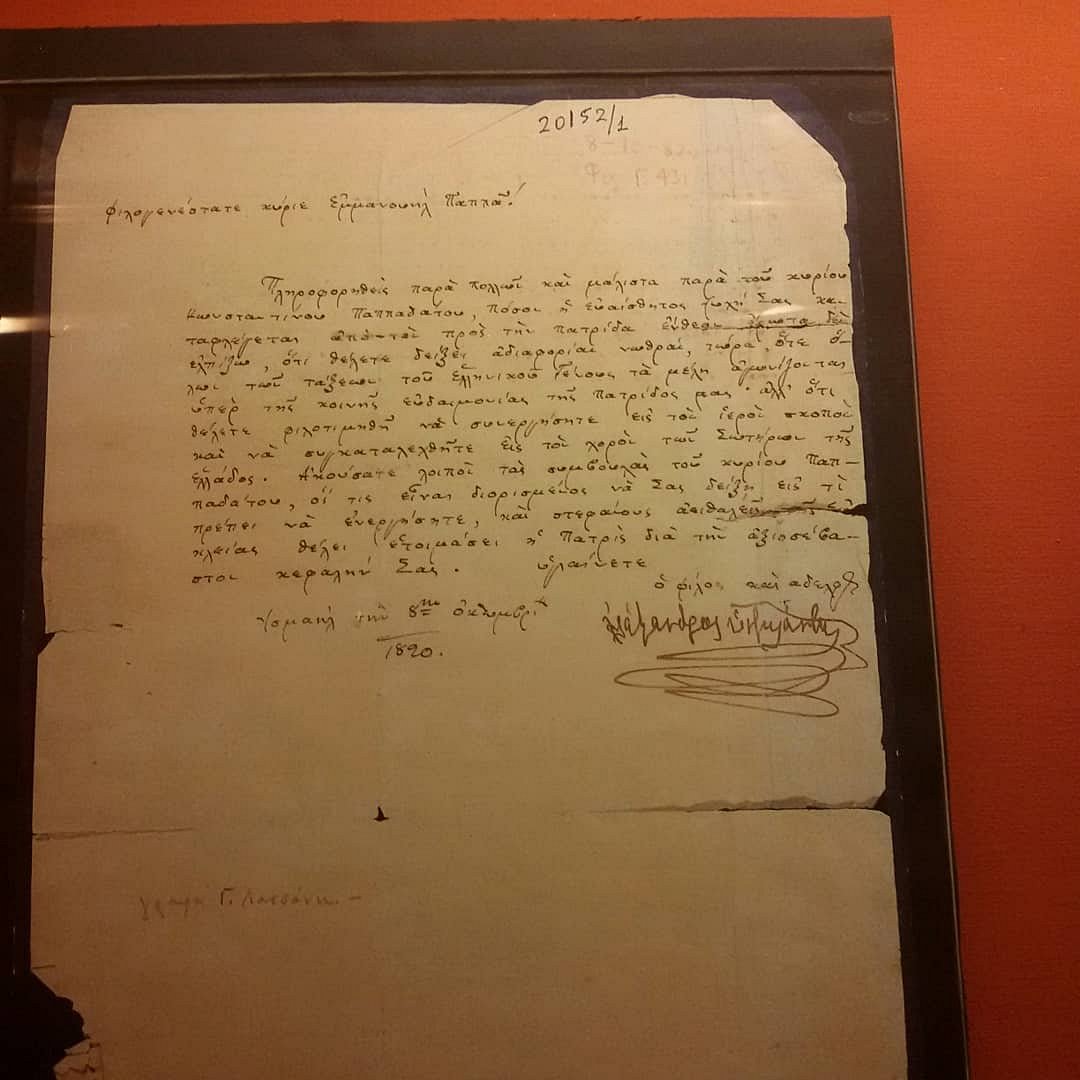 20152/1
8-10-
431
Φιλογενέστατε κύριε Ἐμμανουὴλ Παππᾶ!
Πληροφορηθεὶς παρὰ πολλῶν καὶ μάλιστα παρὰ τοῦ κυρίου
Κωνσταντίνου Παππαδάτου, πόσον ἡ εὐαίσθητος ψυχή Σας κα-
ταφλέγεται ἀπὸ τὸν πρὸς τὴν Πατρίδα ἔνθεον ἔρωτα δὲν
ἐλπίζω, ὅτι θέλετε δείξει ἀδιαφορίαν νωθράν, τώρα, ὅτε ὅ-
λων τῶν τάξεων τοῦ Ἑλληνικοῦ Γένους τὰ μέλη ἀγωνίζονται
ὑπὲρ τῆς κοινῆς εὐδαιμονίας τῆς Πατρίδος μας· ἀλλ' ὅτι
θέλετε φιλοτιμηθῆ νὰ συνεργήσητε εἰς τὸν ἱερὸν σκοπὸν
καὶ νὰ συγκαταλεχθῆτε εἰς τὸν χορὸν τῶν Σωτήρων τῆς
Ἑλλάδος. Ἀκούσατε λοιπὸν τὰς συμβουλὰς τοῦ κυρίου Παπ-
παδάτου, ὅς τις εἶναι διορισμένος νὰ Σας δείξῃ εἰς τί
πρέπει νὰ ἐνεργήσητε, καὶ στεφάνους ἀειθαλεῖς τῆς εὐ-
κλείας θέλει ἑτοιμάσει ἡ Πατρὶς διὰ τὴν ἀξιοσέβα-
στον κεφαλήν Σας. ὑγιαίνετε
ὁ φίλος καὶ ἀδελφὸς
Ἰσμαὴλ τὴν 8ην Ὀκτωμβρίου
1820.
Ἀλέξανδρος Ὑψηλάντης
Γ. Λασσάνη. –